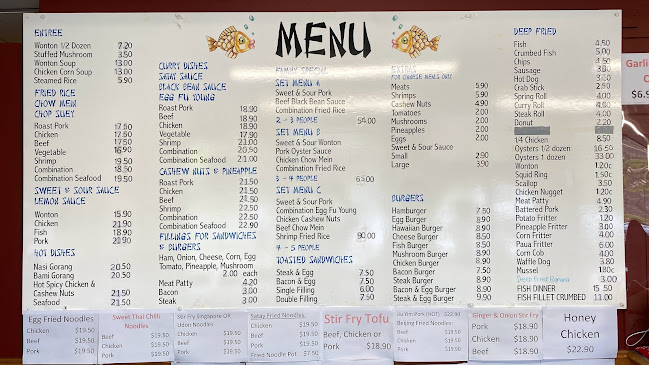 MENU
ENTREE
Wonton 1/2 Dozen 7.20
Stuffed Mushroom 3.50
Wonton Soup 13.00
Chicken Corn Soup 13.00
Steamed Rice 5.90
FRIED RICE
CHOW MEIN
CHOP SUEY
Roast Pork 17.50
Chicken 17.50
Beef 17.50
Vegetable 16.90
Shrimp 19.50
Combination 18.50
Combination Seafood 19.50
SWEET & SOUR SAUCE
LEMON SAUCE
Wonton 15.90
Chicken 21.90
Fish 18.90
Pork 20.90
HOT DISHES
Nasi Gorang 20.50
Bami Gorang 20.50
Hot Spicy Chicken &
Cashew Nuts 21.50
Seafood 21.50
CURRY DISHES
SATAY SAUCE
BLACK BEAN SAUCE
EGG FU YOUNG
Roast Pork 18.90
Beef 18.90
Chicken 18.90
Vegetable 17.90
Shrimp 21.00
Combination 20.50
Combination Seafood 21.00
CASHEW NUTS & PINEAPPLE
Roast Pork 21.50
Chicken 21.50
Beef 21.50
Shrimp 22.50
Combination 22.50
Combination Seafood 22.90
FILLINGS FOR SANDWICHES
& BURGERS
Ham, Onion, Cheese, Corn, Egg
Tomato, Pineapple, Mushroom
2.00 each
Meat Patty 4.20
Bacon 3.00
Steak 3.00
FAMILY SPECIAL
SET MENU A
Sweet & Sour Pork
Beef Black Bean Sauce
Combination Fried Rice
2 - 3 PEOPLE 54.00
SET MENU B
Sweet & Sour Wonton
Pork Oyster Sauce
Chicken Chow Mein
Combination Fried Rice
3 - 4 PEOPLE 65.00
SET MENU C
Sweet & Sour Pork
Combination Egg Fu Young
Chicken Cashew Nuts
Beef Chow Mein
Shrimp Fried Rice 90.00
4 - 5 PEOPLE
TOASTED SANDWICHES
Steak & Egg 7.50
Bacon & Egg 7.50
Single Filling 6.00
Double Filling 7.50
EXTRAS
FOR CHINESE MENUS ONLY
Meats 5.90
Shrimps 5.90
Cashew Nuts 4.90
Tomatoes 2.00
Mushrooms 2.00
Pineapples 2.00
Eggs 2.00
Sweet & Sour Sauce
Small 2.90
Large 3.90
BURGERS
Hamburger 7.50
Egg Burger 8.90
Hawaiian Burger 8.90
Cheese Burger 8.50
Fish Burger 8.50
Mushroom Burger 8.90
Chicken Burger 8.90
Bacon Burger 7.50
Steak Burger 8.90
Bacon & Egg Burger 8.90
Steak & Egg Burger 9.90
DEEP FRIED
Fish 4.50
Crumbed Fish 5.00
Chips 4.50
Sausage 3.80
Hot Dog 3.80
Crab Stick 2.50
Spring Roll 4.00
Curry Roll 4.00
Steak Roll 4.00
Donut 2.20
1/4 Chicken 8.50
Oysters 1/2 dozen 16.50
Oysters 1 dozen 33.00
Wonton 1.20c
Squid Ring 1.50c
Scallop 3.50
Chicken Nugget 1.20c
Meat Patty 4.90
Battered Pork 2.30
Potato Fritter 1.20
Pineapple Fritter 3.00
Corn Fritter 4.00
Paua Fritter 6.00
Corn Cob 4.00
Waffle Dog 3.80
Mussel 1.80c
Deep Fried Banana 3.00
FISH DINNER 15.50
FISH FILLET CRUMBED 11.00
Egg Fried Noodles
Chicken $19.50
Beef $19.50
Pork $19.50
Sweet Thai Chilli
Noodles
Beef $19.50
Chicken $19.50
Pork $19.50
Stir Fry Singapore OR
Udon Noodles
Chicken $19.50
Beef $19.50
Pork $19.50
Satay Fried Noodles
Chicken $19.50
Beef $19.50
Pork $19.50
Fried Noodle Pot $7.50
Stir Fry Tofu
Beef, Chicken or
Pork $18.90
Beijing Fried Noodles:
Beef $19.50
Chicken $19.50
Pork $19.50
Ginger & Onion Stir Fry
Pork $18.90
Chicken $18.90
Beef $18.90
Honey
Chicken
$22.90